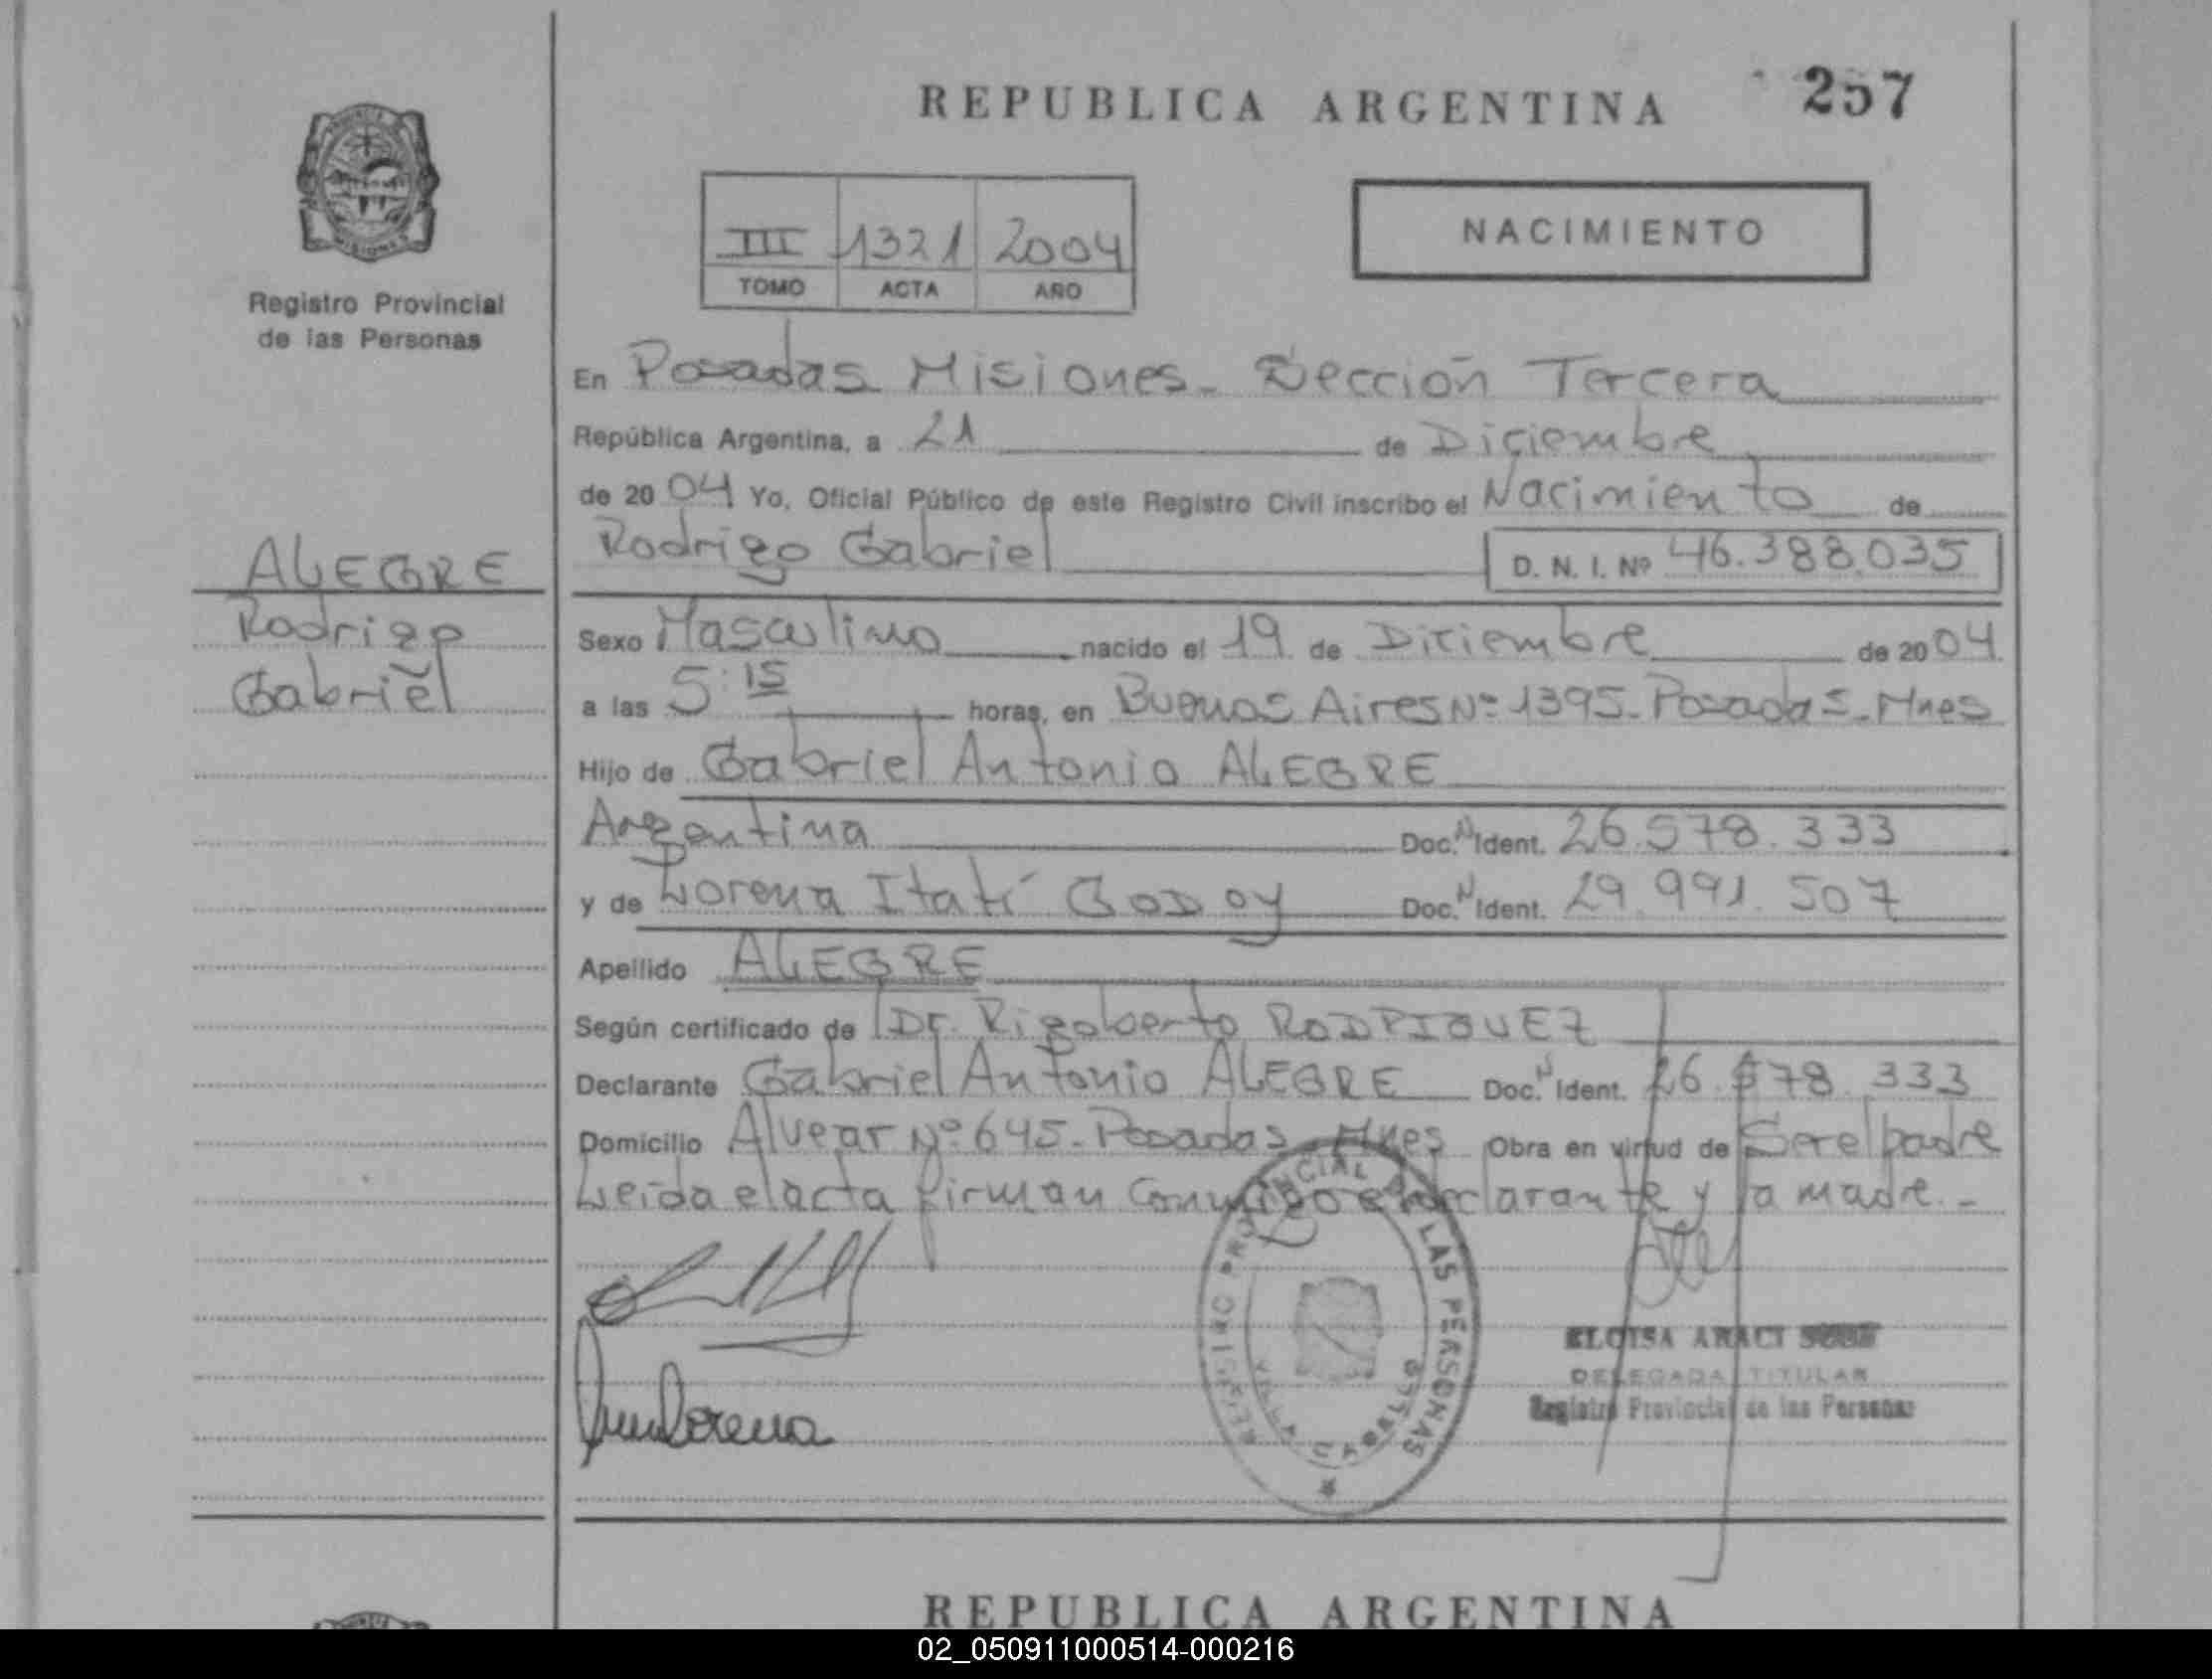 REPUBLICA ARGENTINA 257
III 1321 2004
TOMO ACTA AÑO
NACIMIENTO
PROVINCIA DE MISIONES
Registro Provincial
de las Personas
En Posadas Misiones - Sección Tercera
República Argentina, a 21 de Diciembre
de 2004 Yo, Oficial Público de este Registro Civil inscribo el Nacimiento de
Rodrigo Gabriel D. N. I. Nº 46.388.035
ALEGRE
Rodrigo
Gabriel
Sexo Masculino nacido el 19 de Diciembre de 2004
a las 5:15 horas, en Buenos Aires Nº 1395 - Posadas - Mnes
Hijo de Gabriel Antonio ALEGRE
Argentina Doc. N Ident. 26.578.333
y de Lorena Itatí GODOY Doc. N Ident. 29.991.507
Apellido ALEGRE
Según certificado de Dr. Rigoberto RODRIGUEZ
Declarante Gabriel Antonio ALEGRE Doc. N Ident. 26.578.333
Domicilio Alvear Nº 645 - Posadas - Mnes Obra en virtud de Ser el padre
Leída el acta firman conmigo el declarante y la madre. -
REGISTRO PROVINCIAL DE LAS PERSONAS
ELOISA ARACI
DELEGADA TITULAR
Registro Provincial de las Personas
Lorena
REPUBLICA ARGENTINA
02_050911000514-000216